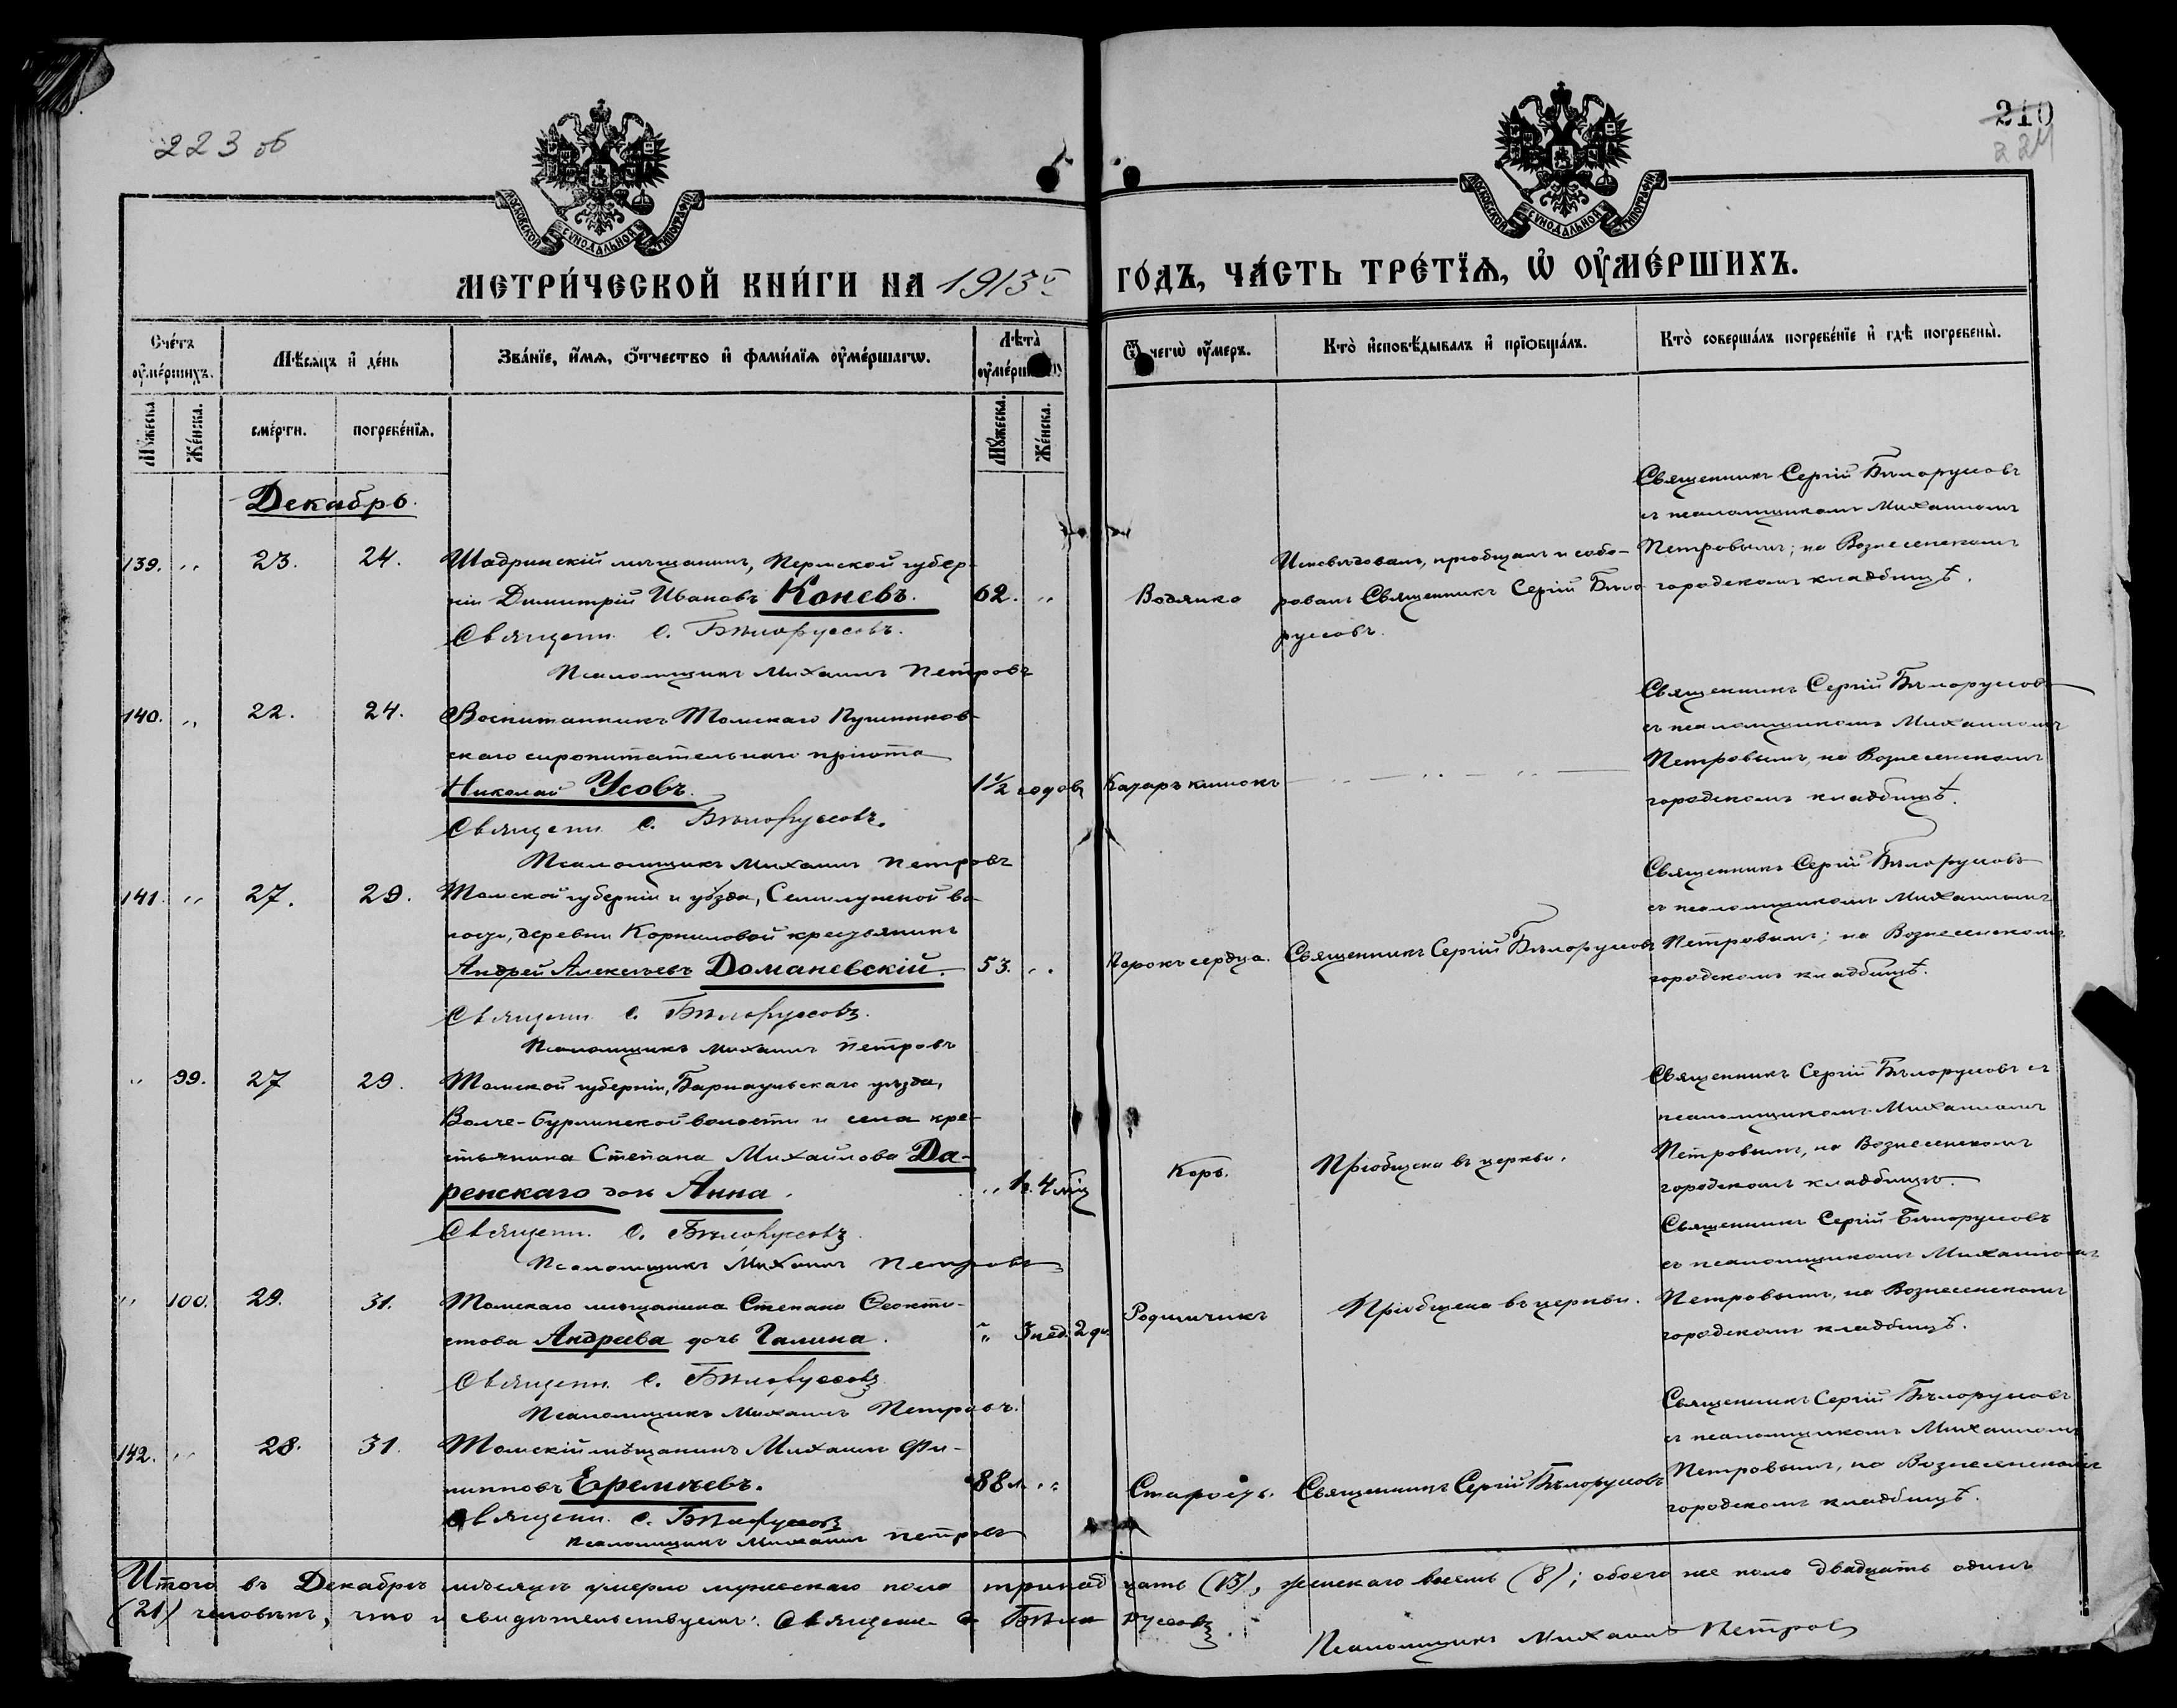 223 об
210
224
МОСКОВСКОЙ СѴНОДАЛЬНОЙ ТИПОГРАФІИ
МОСКОВСКОЙ СѴНОДАЛЬНОЙ ТИПОГРАФІИ
МЕТРИ́ЧЕСКОЙ КНИ́ГИ НА 1913 ГО́ДЪ, ЧА́СТЬ ТРЕ́ТЇѦ, Ѡ҆ ОУ҆МЕ́РШИХЪ.
Сче́тъ оу҆ме́ршихъ.
Мѣ́сяцъ и҆ де́нь
Зва́нїе, и҆́мя, ѻ҆́тчество и҆ фами́лїя оу҆ме́ршагѡ.
Лѣта̀ оу҆ме́рш
Ѿ чегѡ̀ оу҆́меръ.
Кто̀ и҆сповѣ́дывалъ и҆ прїѡбща́лъ.
Кто̀ соверша́лъ погребе́нїе и҆ гдѣ̀ погребены̀.
Мꙋ́жеска.
Же́нска.
сме́рти.
погребе́нїя.
Мꙋ́жеска.
Же́нска.
Декабрь.
139. „ 23. 24.
Шадринскій мѣщанинъ, Пермской губер-
ніи Димитрій Ивановъ Коневъ. 62. „
Священн. С. Бѣлоруссовъ.
Псаломщикъ Михаилъ Петровъ
Водянка
Исповѣдовалъ, пріобщалъ и собо-
ровалъ Священникъ Сергій Бѣло-
руссовъ.
Священникъ Сергій Бѣлоруссовъ
съ псаломщикомъ Михаиломъ
Петровымъ; на Вознесенскомъ
городскомъ кладбищѣ.
140. „ 22. 24.
Воспитанникъ Томскаго Пушников-
скаго сиропитательнаго пріюта
Николай Усовъ. 1½ годовъ
Священн. С. Бѣлоруссовъ.
Псаломщикъ Михаилъ Петровъ
Катаръ кишокъ
Священникъ Сергій Бѣлоруссовъ
съ псаломщикомъ Михаиломъ
Петровымъ, на Вознесенскомъ
городскомъ кладбищѣ.
141. „ 27. 29.
Томской губерніи и уѣзда, Семилужной во-
лости, деревни Корниловой крестьянинъ
Андрей Алексѣевъ Доманевскій. 53. „
Священн. С. Бѣлоруссовъ.
Псаломщикъ Михаилъ Петровъ
Порокъ сердца.
Священникъ Сергій Бѣлоруссовъ
Священникъ Сергій Бѣлоруссовъ
съ псаломщикомъ Михаиломъ
Петровымъ; на Вознесенскомъ
городскомъ кладбищѣ.
„ 99. 27 29.
Томской губерніи, Барнаульскаго уѣзда,
Волче-Бурлинской волости и села кре-
стьянина Степана Михайлова Да-
ренскаго дочь Анна. „ 1г. 4 мѣс
Священн. С. Бѣлоруссовъ
Псаломщикъ Михаилъ Петровъ
Корь.
Пріобщена въ церкви.
Священникъ Сергій Бѣлоруссовъ съ
псаломщикомъ Михаиломъ
Петровымъ, на Вознесенскомъ
городскомъ кладбищѣ.
„ 100. 29. 31.
Томскаго мѣщанина Степана Ѳеокти-
стова Андреева дочь Галина. „ 3 нед. 2 дн.
Священн. С. Бѣлоруссовъ
Псаломщикъ Михаилъ Петровъ.
Родимчикъ
Пріобщена въ церкви.
Священникъ Сергій Бѣлоруссовъ
съ псаломщикомъ Михаиломъ
Петровымъ, на Вознесенскомъ
городскомъ кладбищѣ.
142. „ 28. 31.
Томскій мѣщанинъ Михаилъ Фи-
липповъ Еремѣевъ. 88 л. „
Священн. С. Бѣлоруссовъ
Псаломщикъ Михаилъ Петровъ
Старость.
Священникъ Сергій Бѣлоруссовъ
Священникъ Сергій Бѣлоруссовъ
съ псаломщикомъ Михаиломъ
Петровымъ, на Вознесенскомъ
городскомъ кладбищѣ.
Итого въ Декабрѣ мѣсяцѣ умерло мужескаго пола тринадцать (13), женскаго восемь (8); обоего же пола двадцать одинъ
(21) человѣкъ, что и свидѣтельствуемъ: Священн. С. Бѣлоруссовъ.
Псаломщикъ Михаилъ Петровъ